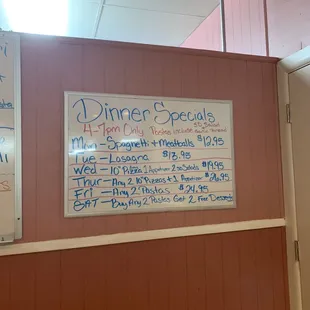 Dinner Specials
4-7pm Only Pastas include
Mon - Spaghetti + Meatballs $12.95
Tue - Lasagna $13.95
Wed - 10" Pizza 1 Appetizer 2 Salads $19.95
Thur - Any 2 10" Pizzas + 1 Appetizer $26.95
Fri - Any 2 Pastas $24.95
SAT - Buy Any 2 Pastas Get 2 Free Desserts